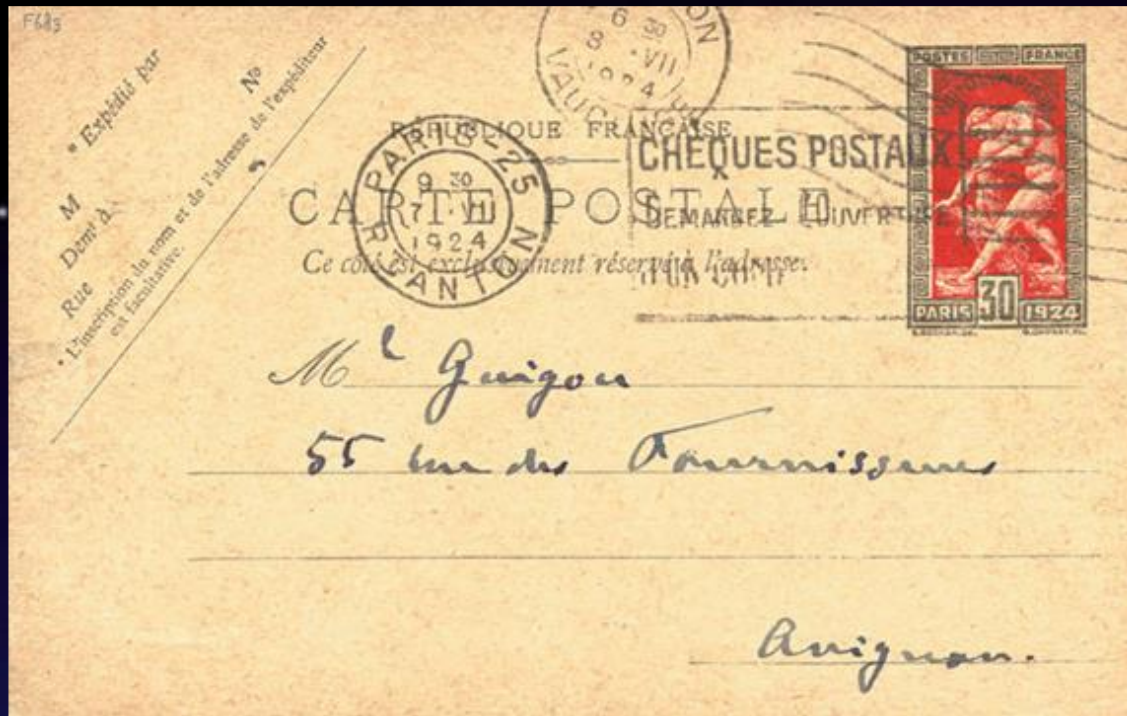 F683
Expédié par
M
N°
Demt à
Rue
* L'inscription du nom et de l'adresse de l'expéditeur
est facultative.
ON
6 30
8 VII
1924
VAUCLUSE
POSTES FRANCE
RÉPUBLIQUE FRANÇAISE
CARTE POSTALE
Ce côté est exclusivement réservé à l'adresse.
PARIS-25
9 30
7 VII
1924
R. DANTON
CHEQUES POSTAUX
DEMANDEZ L'OUVERTURE
D'UN
PARIS 30 1924
Mr Guigou
55 rue des Fourmisseurs
Avignon.